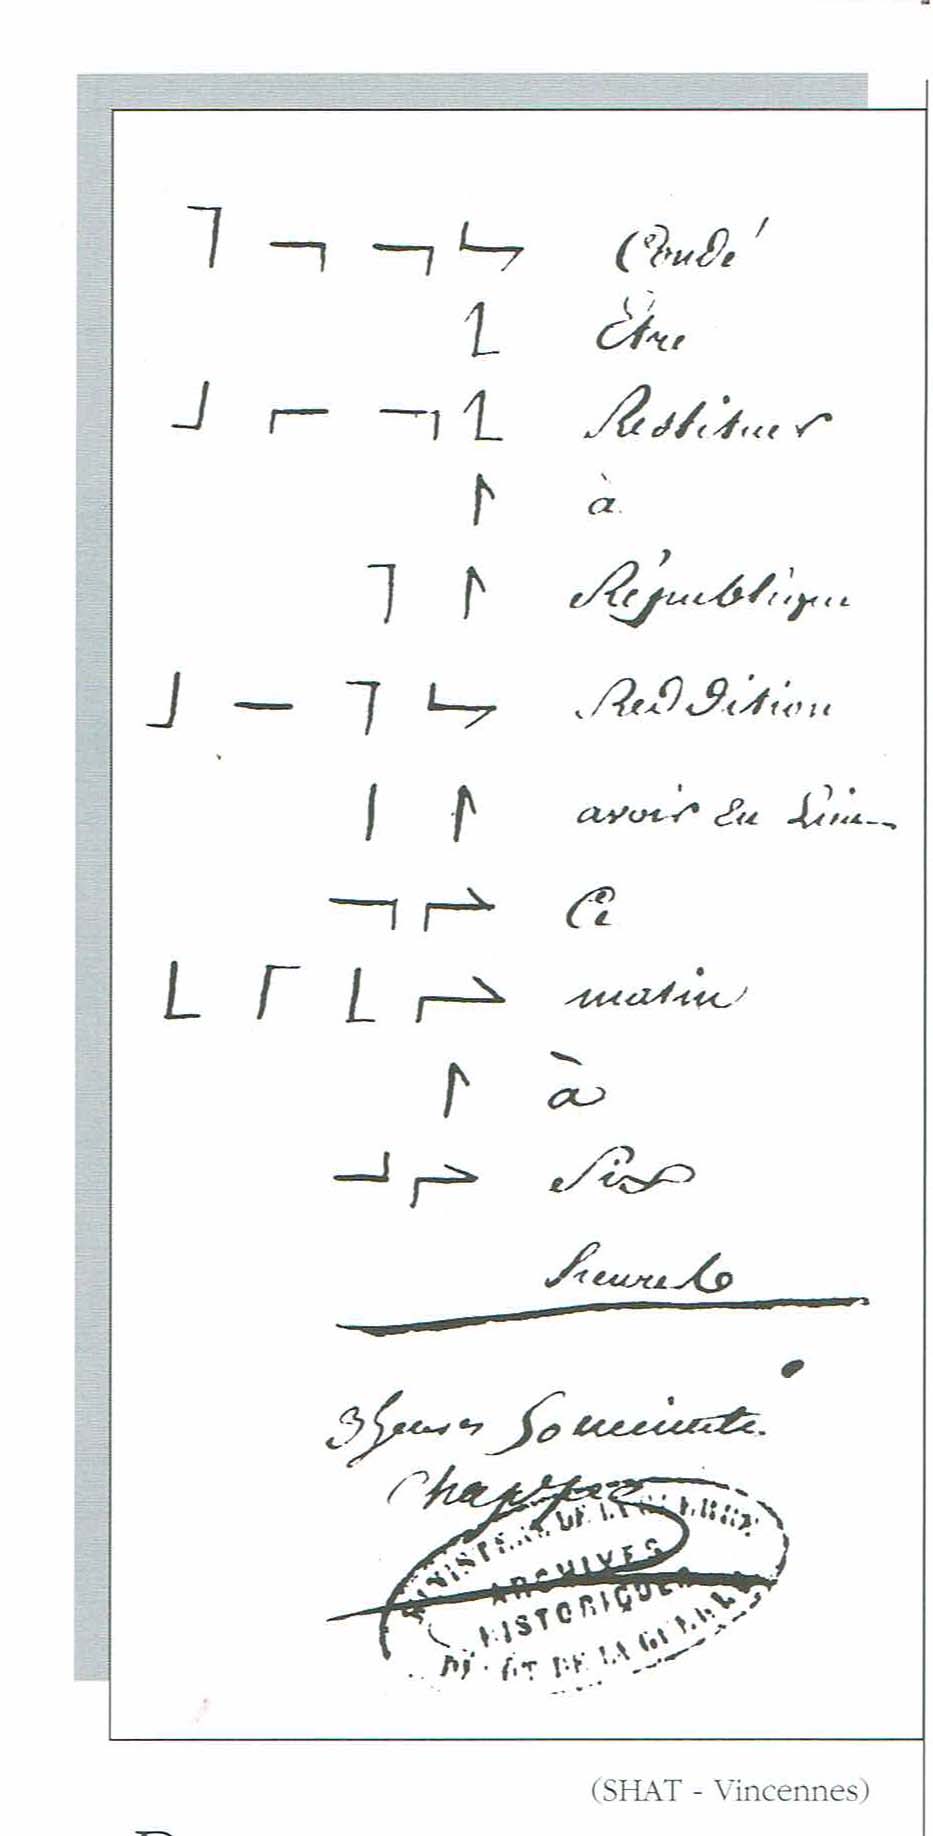 Condé
Être
Restituer
à
République
Reddition
avoir eu lieu
Ce
matin
à
Six
heures
3 heures 50 minutes
Chappe
MINISTÈRE DE LA GUERRE
ARCHIVES
HISTORIQUES
DE LA GUERRE
(SHAT - Vincennes)